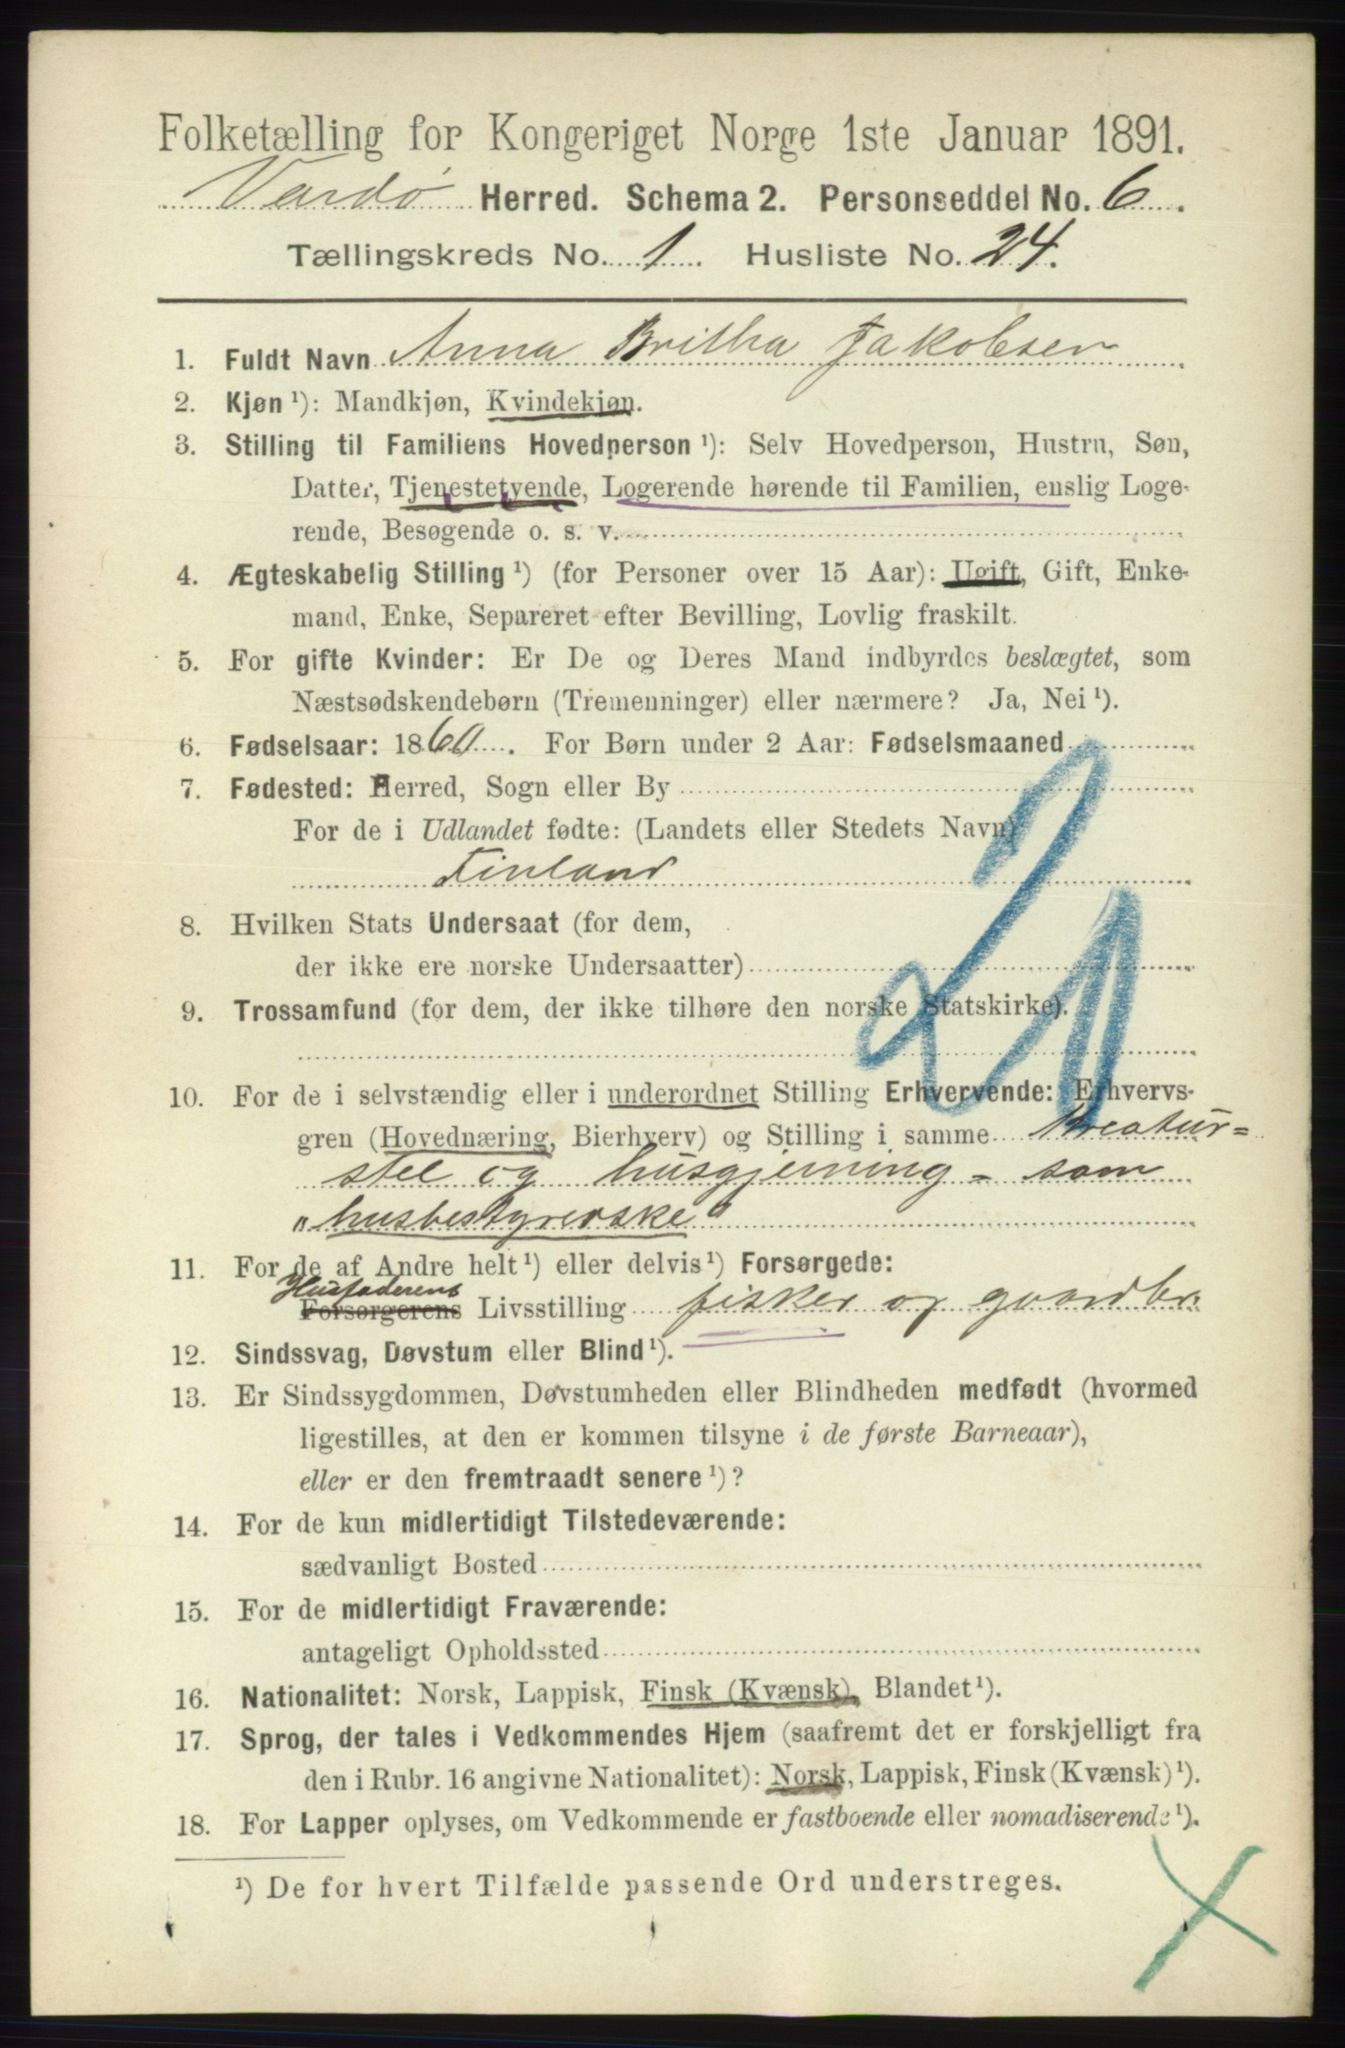 Folketælling for Kongeriget Norge 1ste Januar 1891.
Vardø Herred. Schema 2. Personseddel No. 6.
Tællingskreds No. 1. Husliste No. 24.
1. Fuldt Navn Anna Britha Jakobsen
2. Kjøn ¹): Mandkjøn, Kvindekjøn.
3. Stilling til Familiens Hovedperson ¹): Selv Hovedperson, Hustru, Søn,
Datter, Tjenestetyende, Logerende hørende til Familien, enslig Loge-
rende, Besøgende o. s. v.
4. Ægteskabelig Stilling ¹) (for Personer over 15 Aar): Ugift, Gift, Enke-
mand, Enke, Separeret efter Bevilling, Lovlig fraskilt.
5. For gifte Kvinder: Er De og Deres Mand indbyrdes beslægtet, som
Næstsødskendebørn (Tremenninger) eller nærmere? Ja, Nei ¹).
6. Fødselsaar: 1860. For Børn under 2 Aar: Fødselsmaaned
7. Fødested: Herred, Sogn eller By
For de i Udlandet fødte: (Landets eller Stedets Navn)
Finland
20
8. Hvilken Stats Undersaat (for dem,
der ikke ere norske Undersaatter)
9. Trossamfund (for dem, der ikke tilhøre den norske Statskirke).
10. For de i selvstændig eller i underordnet Stilling Erhvervende: Erhvervs-
gren (Hovednæring, Bierhverv) og Stilling i samme Kreatur=
stel og husgjerning = som
"husbestyrerske"
11. For de af Andre helt ¹) eller delvis ¹) Forsørgede:
Husfaderens
Forsørgerens Livsstilling fisker og gaardbr.
12. Sindssvag, Døvstum eller Blind ¹).
13. Er Sindssygdommen, Døvstumheden eller Blindheden medfødt (hvormed
ligestilles, at den er kommen tilsyne i de første Barneaar),
eller er den fremtraadt senere ¹)?
14. For de kun midlertidigt Tilstedeværende:
sædvanligt Bosted
15. For de midlertidigt Fraværende:
antageligt Opholdssted
16. Nationalitet: Norsk, Lappisk, Finsk (Kvænsk), Blandet ¹).
17. Sprog, der tales i Vedkommendes Hjem (saafremt det er forskjelligt fra
den i Rubr. 16 angivne Nationalitet): Norsk, Lappisk, Finsk (Kvænsk) ¹).
18. For Lapper oplyses, om Vedkommende er fastboende eller nomadiserende ¹).
¹) De for hvert Tilfælde passende Ord understreges.